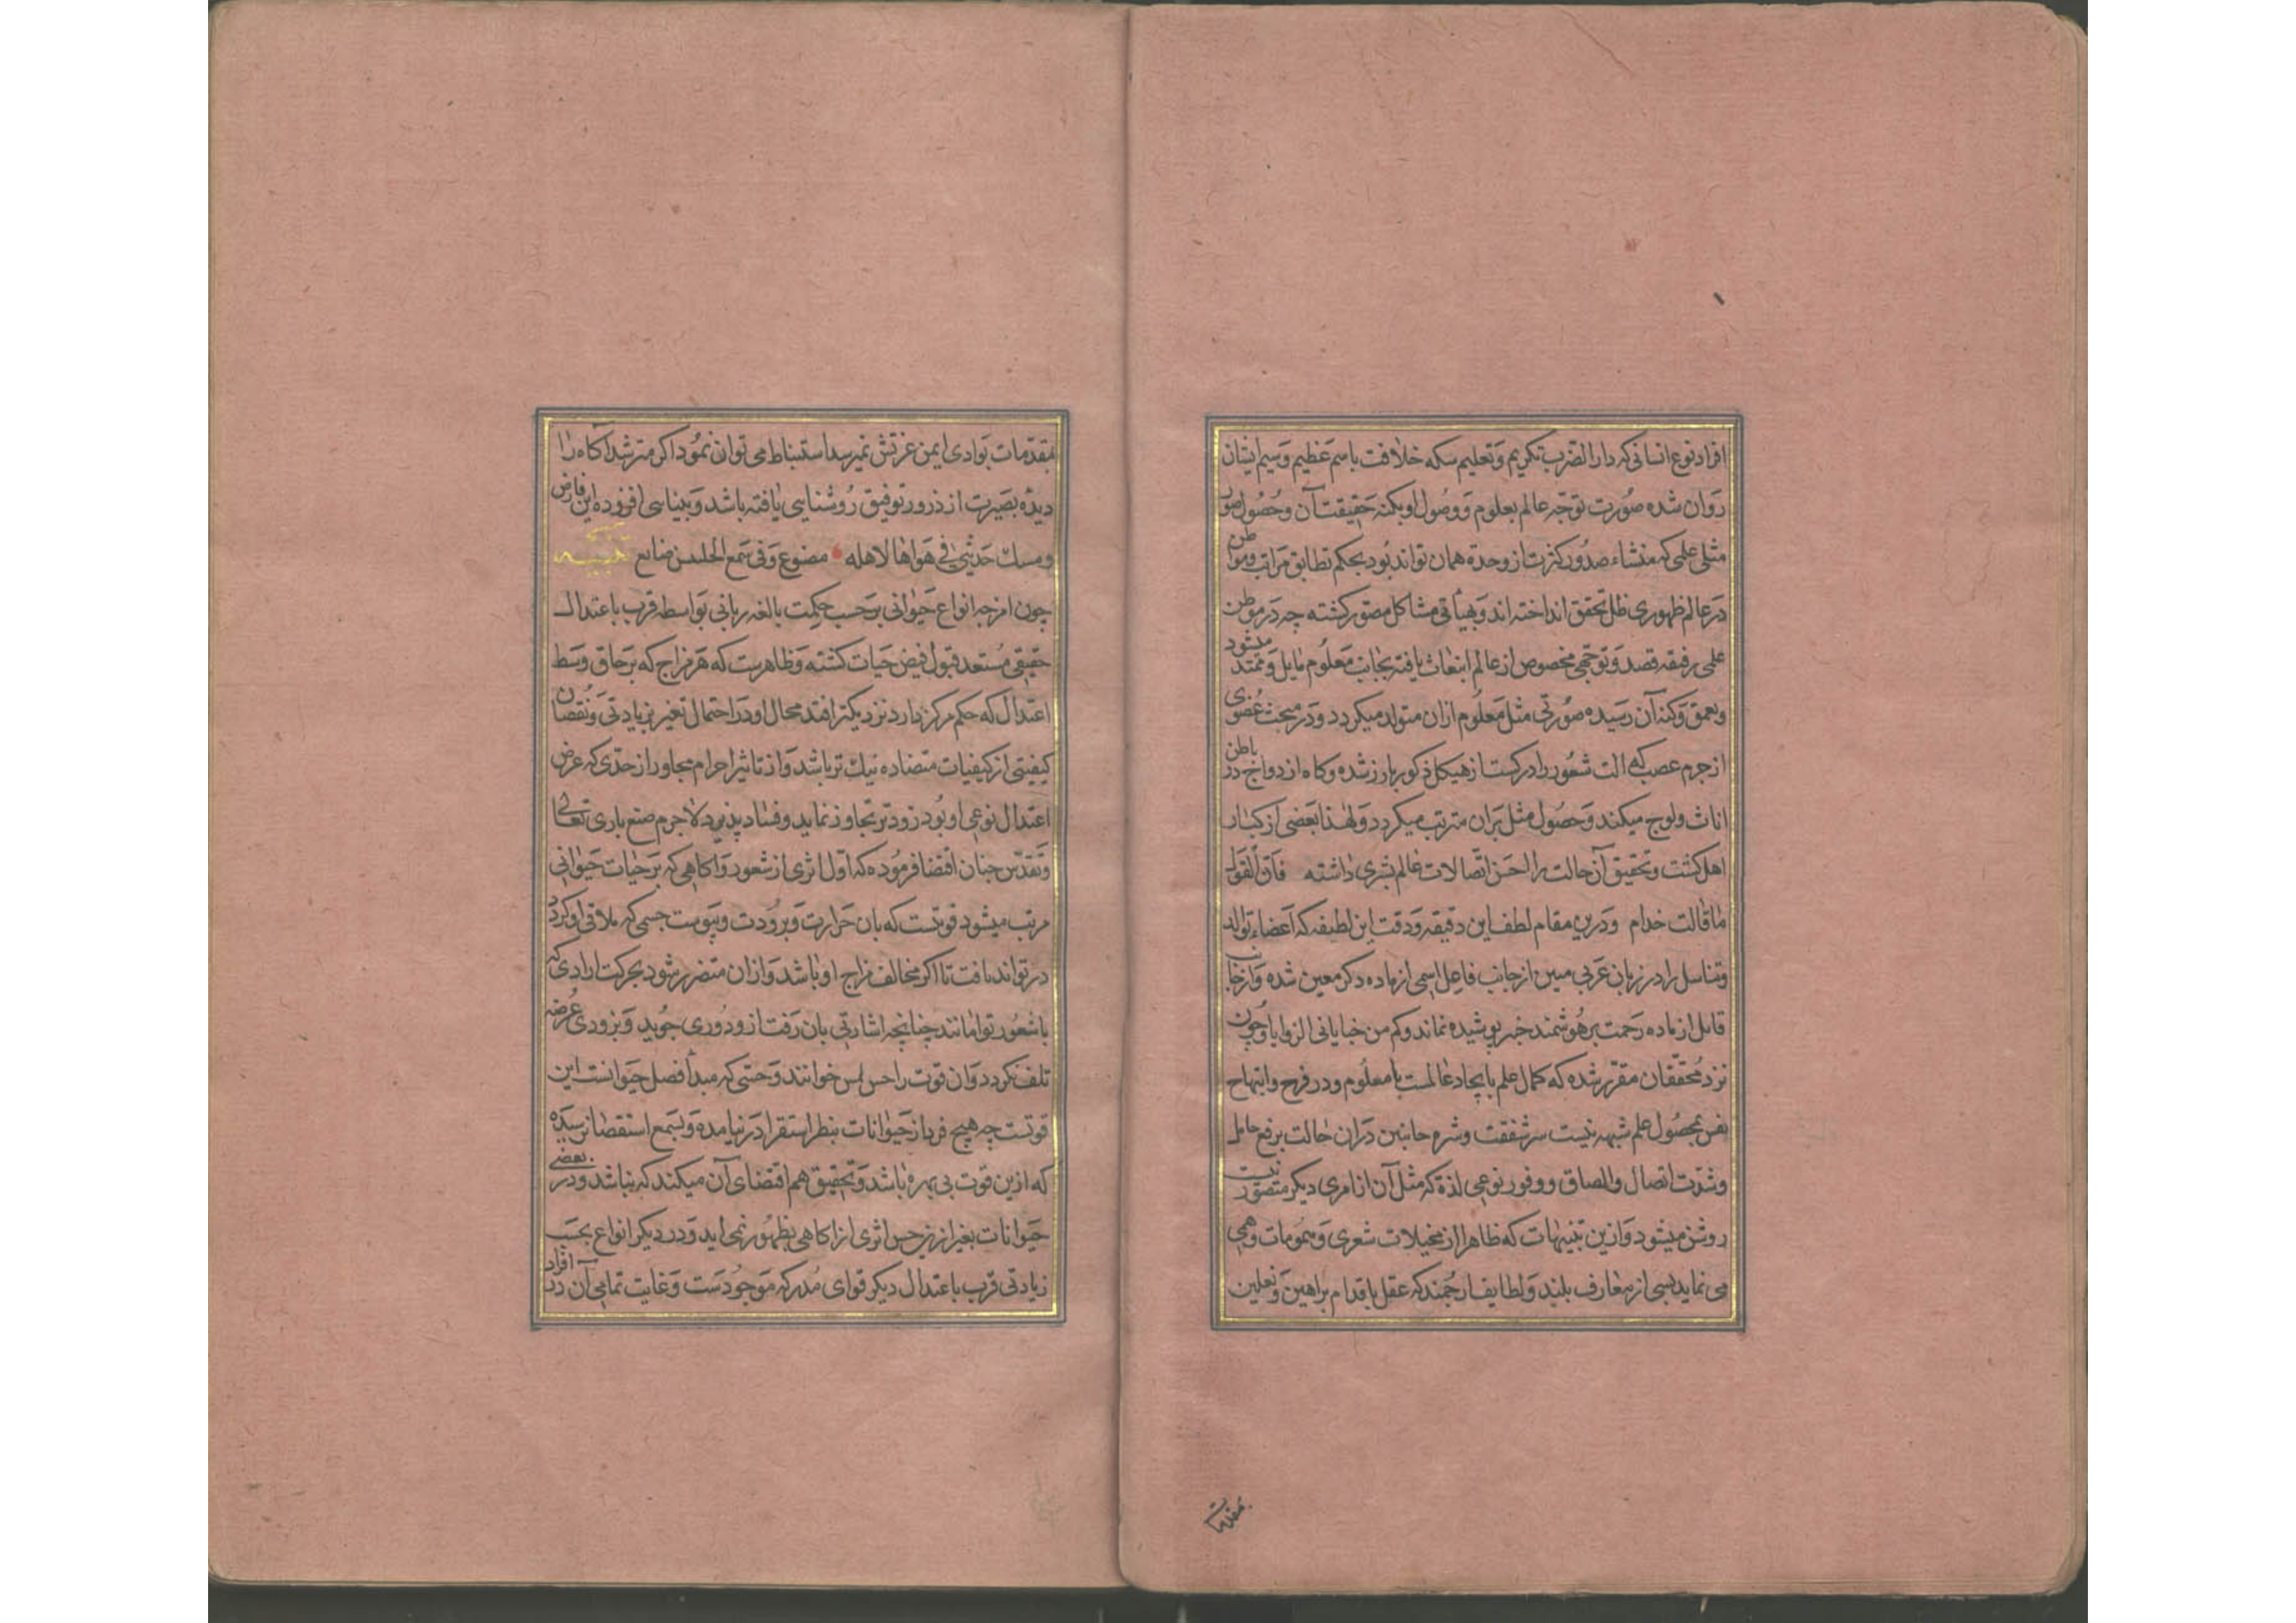 افراد نوع انسانی که دار الضرب تکریم و تعلیم سکه خلافت باسم عظیم و سیم ایشان
روان شده صورت توجه عالم بعلوم و وصول او بکنه حقیقت آن و حصول صور
مثلی علمی که منشاء صدور کثرت از وحدة همان تواند بود بحکم تطابق مراتب و مواطن
در عالم ظهوری ظل تحقق انداخته اند و بهیأتی مشاکل مصور کشته چه در موطن
علمی رقیقه قصد و توجهی مخصوص از عالم انبعاث یافته بجانب معلوم مایل و ممتد میشود
و بعمق و کنه آن رسیده صورتی مثل معلوم ازان متولد میکردد و در مبحث عضوی
از جرم عصب که الت شعور و ادراکست از هیکل ذکور بارز شده و کاه ازدواج در باطن
اناث ولوج میکند و حصول مثل بران مترتب میکردد و لهذا بعضی از کبار
اهل کشف و تحقیق آن حالت را الحسن اتصالات عالم بشری داشته فان القول
ما قالت خدام و درین مقام لطف این دقیقه و دقت این لطیفه که اعضاء توالد
و تناسل را در زبان عربی مبین از جانب فاعل اسمی از ماده ذکر معین شده و از جانب
قابل از ماده رحمت بر هوشمند خبیر پوشیده نماند و کم من خبایا فی الزوایا و چون
نزد محققان مقرر شده که کمال علم بایجاد عالمست با معلوم و در فرح و ابتهاج
نفس بحصول علم شبهه نیست سر شفقت و شره جانبین دران حالت برفع حایل
و شدت اتصال و الصاق و وفور نوعی لذة که مثل آن از امری دیکر متصور نیست
روشن میشود و ازین تنبیهات که ظاهرا از مخیلات شعری و موهومات وهمی
می نماید بسی از معارف بلند و لطایف ارجمند که عقل باقدام براهین و نعلین
مقدمات
مقدمات بوادی ایمن عزتش نمیرسد استنباط می توان نمود اکر مترشد آکاه را
دیده بصیرت از ذرور توفیق روشنایی یافته باشد و بینایی افزوده ابن فارض
ومسك حدیثی فی هواها لاهله مضوع وفی سمع الخلیین ضایع تنبیه
چون امزجه انواع حیوانی بر حسب حکمت بالغه ربانی بواسطه قرب باعتدال
حقیقی مستعد قبول فیض حیات کشته و ظاهرست که هر مزاج که بر حاق وسط
اعتدال که حکم مرکز دارد نزدیکتر افتد مجال او در احتمال تغیر بزیادتی و نقصان
کیفیتی از کیفیات متضاده نیك تر باشد و از تاثیر اجرام مجاور از حدی که عرض
اعتدال نوعی او بود زودتر تجاوز نماید و فساد پذیرد لاجرم صنع باری تعالی
و تقدس چنان اقتضا فرموده که اول اثری از شعور و اکاهی که بر حیات حیوانی
مرتب میشود قوتست که بان حرارت و برودت و یبوست جسمی که ملاقی او کردد
در تواند یافت تا اکر مخالف مزاج او باشد و ازان متضرر شود بحرکت ارادی که
با شعور توامانند چنانچه اشارتی بان رفت ازو دوری جوید و بزودی عرضه
تلف نکردد و ان قوت را حس لمس خوانند و حسی که مبدأ فصل حیوانست این
قوتست چه هیچ فرد از حیوانات بنظر استقرا در نیامده و بسمع استقصا نرسیده
که ازین قوت بی بهره باشد و تحقیق هم اقتضای آن میکند که نباشد و در بعضی
حیوانات بغیر ازین حس اثری از اکاهی بظهور نمی اید و در دیکر انواع بحسب
زیادتی قرب باعتدال دیکر قوای مدرکه موجودست و غایت تمامی آن در افراد